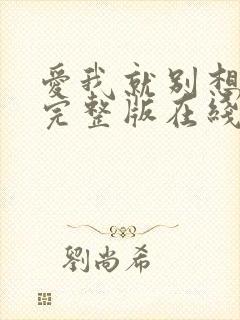 愛我就别想
完整版在綫
劉尚希